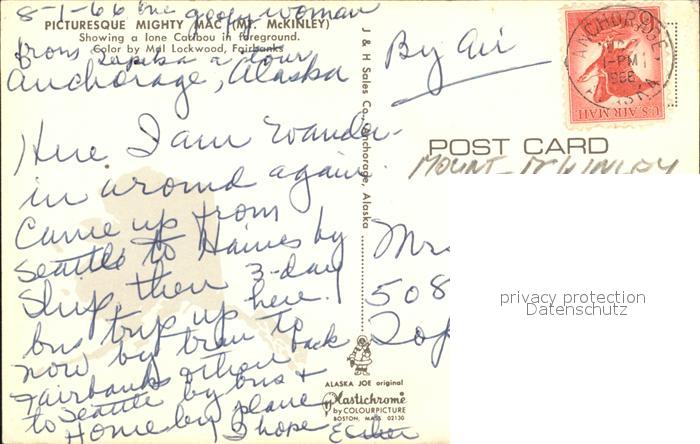 8-1-66 the goofy woman
PICTURESQUE MIGHTY MAC (MT. McKINLEY)
Showing a lone Caribou in foreground.
Color by Mal Lockwood, Fairbanks
from a tour
Anchorage, Alaska
Here I am wander-
in around again.
Came up from
Seattle to Haines by
Ship, then 3-day
bus trip up here.
now by train to
Fairbanks & then back
to Seattle by bus &
Home by plane
I hope Esther
J & H Sales Co., Anchorage, Alaska
ALASKA JOE original
Plastichrome
by COLOURPICTURE
BOSTON, MASS. 02130
By Air
ANCHORAGE
1-PM
1966
ALASKA
6¢
U.S. AIR MAIL
POST CARD
MOUNT McKINLEY
Mrs
508
Top
privacy protection
Datenschutz